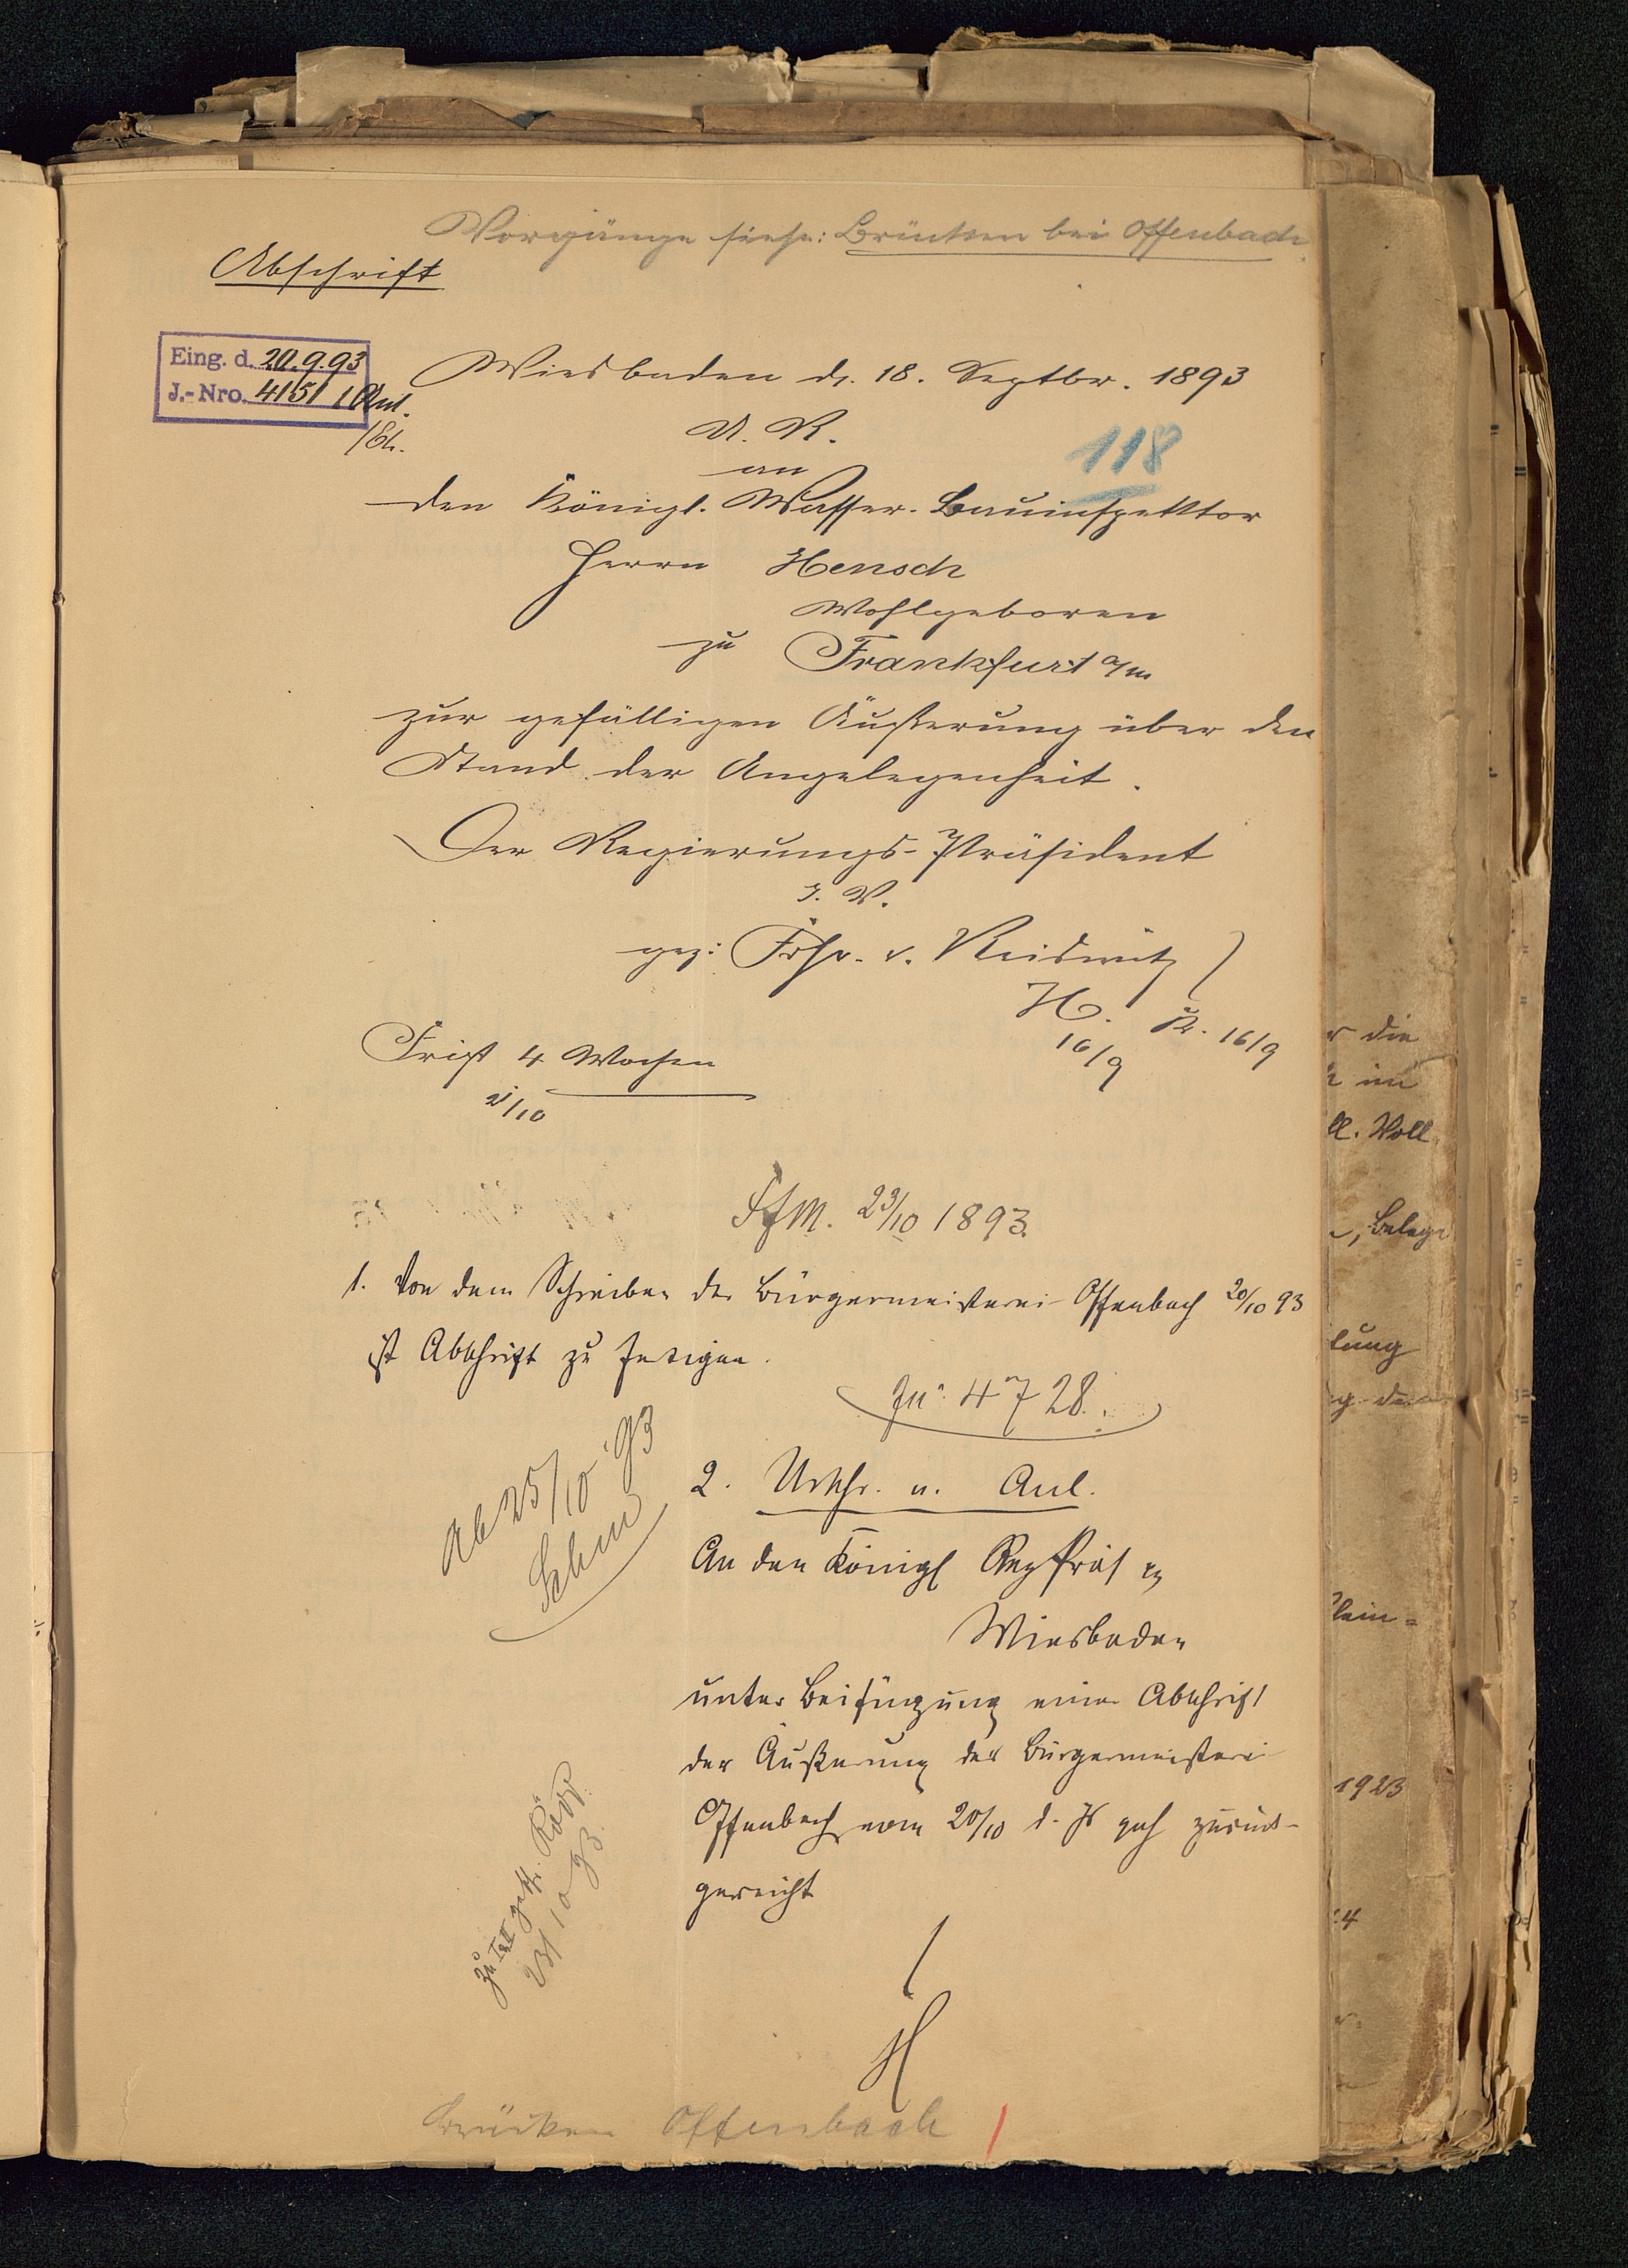 Vorgänge siehe: Brücken bei Offenbach.
Abschrift
Eing. d. 20.9.93
J.-Nro. 4151 1 Anl.
Wiesbaden d. 18. Septbr. 1893
U. R.
118
an
den Königl. Wasser-Bauinspektor
Herrn Hensch
Wohlgeboren
zu Frankfurt a/m
zur gefälligen Äußerung über den
Stand der Angelegenheit.
Der Regierungs-Präsident
I. V.
gez: Frhr. v. Reiswitz
H. 16/9
R. 16/9
Frist 4 Wochen
/10
FfM. 23/10 1893.
1. Von dem Schreiben der Bürgermeisterei Offenbach 20/10 93
ist Abschrift zu fertigen.
Jn: 4728.
2. Urschr. u. Anl.
An den Königl Reg Präs
Wiesbaden
unter Beifügung einer Abschrift
der Äußerung der Bürgermeisterei
Offenbach vom 20/10 d. Js geh zurück-
gereicht
H
ab 25/10 93
zu
23/10 93.
Brücken Offenbach
r die
im
ll. Voll
, Belege
lung
g
lein=
1923
4